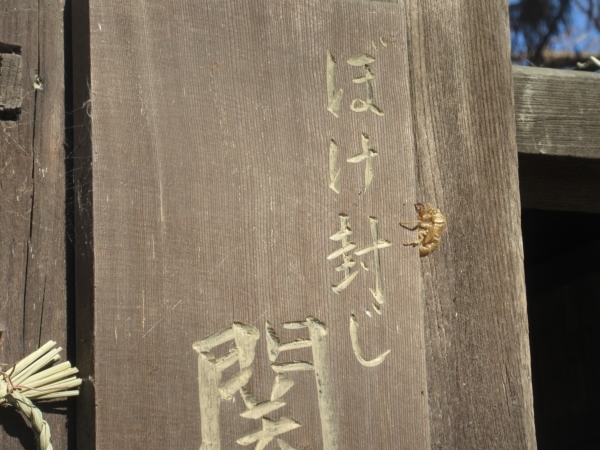 ぼけ封じ
関